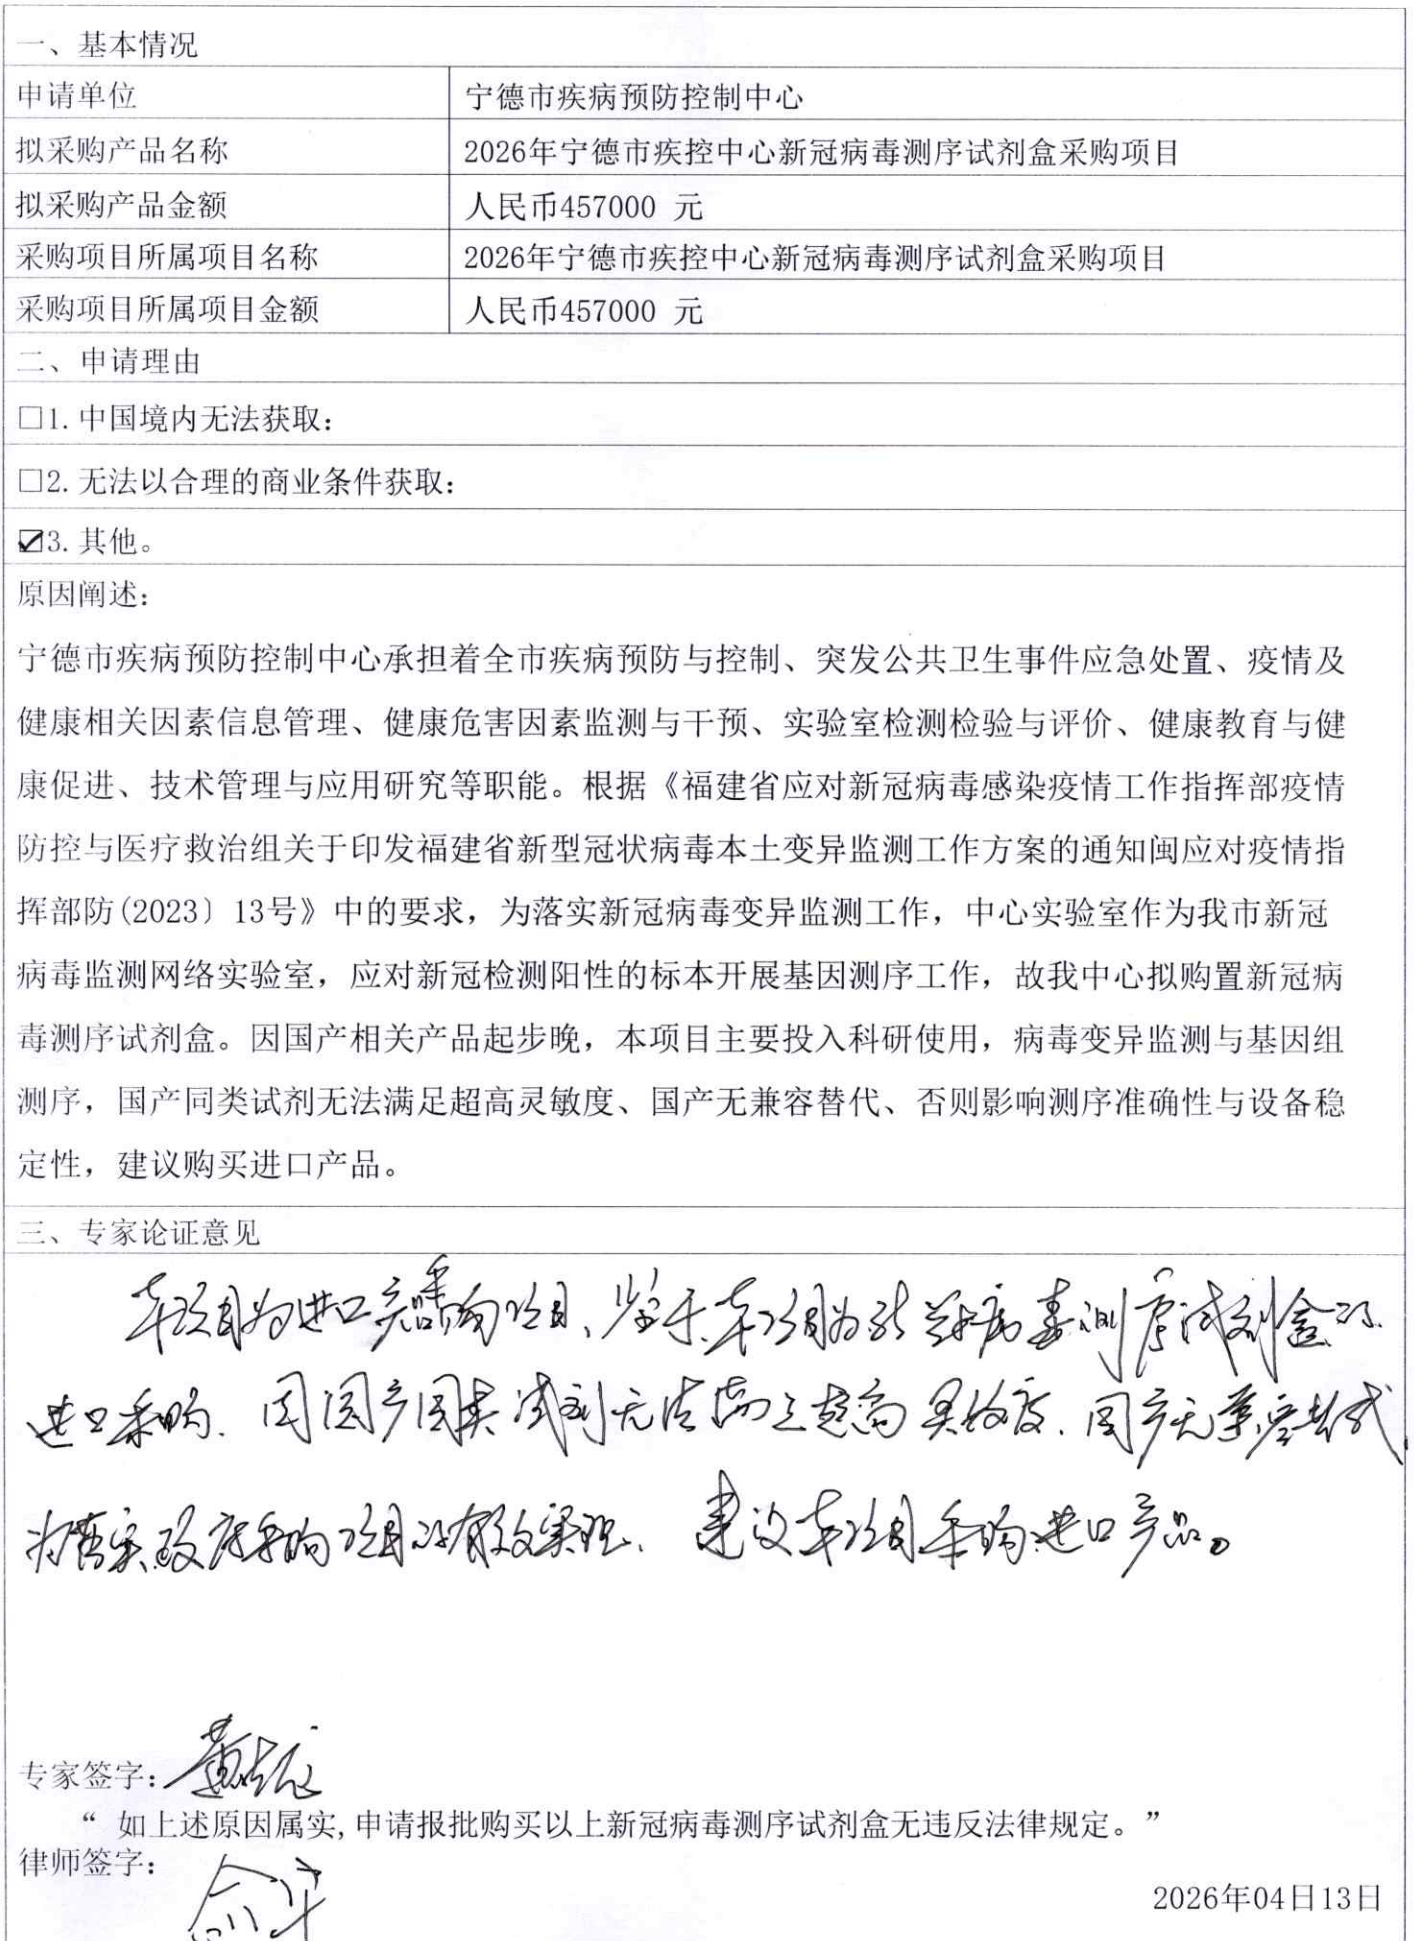 一、基本情况
申请单位 宁德市疾病预防控制中心
拟采购产品名称 2026年宁德市疾控中心新冠病毒测序试剂盒采购项目
拟采购产品金额 人民币457000 元
采购项目所属项目名称 2026年宁德市疾控中心新冠病毒测序试剂盒采购项目
采购项目所属项目金额 人民币457000 元
二、申请理由
□1. 中国境内无法获取：
□2. 无法以合理的商业条件获取：
☑3. 其他。
原因阐述：
宁德市疾病预防控制中心承担着全市疾病预防与控制、突发公共卫生事件应急处置、疫情及
健康相关因素信息管理、健康危害因素监测与干预、实验室检测检验与评价、健康教育与健
康促进、技术管理与应用研究等职能。根据《福建省应对新冠病毒感染疫情工作指挥部疫情
防控与医疗救治组关于印发福建省新型冠状病毒本土变异监测工作方案的通知闽应对疫情指
挥部防(2023〕13号》中的要求，为落实新冠病毒变异监测工作，中心实验室作为我市新冠
病毒监测网络实验室，应对新冠检测阳性的标本开展基因测序工作，故我中心拟购置新冠病
毒测序试剂盒。因国产相关产品起步晚，本项目主要投入科研使用，病毒变异监测与基因组
测序，国产同类试剂无法满足超高灵敏度、国产无兼容替代、否则影响测序准确性与设备稳
定性，建议购买进口产品。
三、专家论证意见
本项目为进口产品采购项目、鉴于本项目为新冠病毒测序试剂盒的
进口采购. 因国产同类试剂无法满足超高灵敏度. 国产无兼容替代
为落实政府采购项目的有效实现. 建议本项目采购进口产品。
专家签字：
“ 如上述原因属实,申请报批购买以上新冠病毒测序试剂盒无违反法律规定。”
律师签字：
2026年04日13日